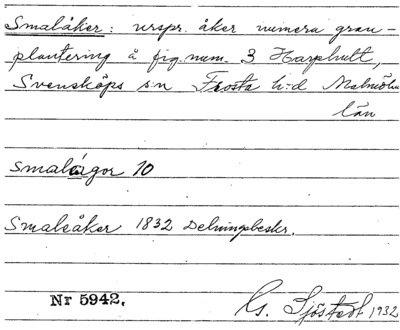 Smalåker: urspr. åker numera gran-
plantering å fig.num. 3 Harphult,
Svensköps s:n Frosta h:d Malmöhus
län
Smalågor 10
Smalåker 1832 Delningsbeskr.
Nr 5942.
G. Sjöstedt 1932